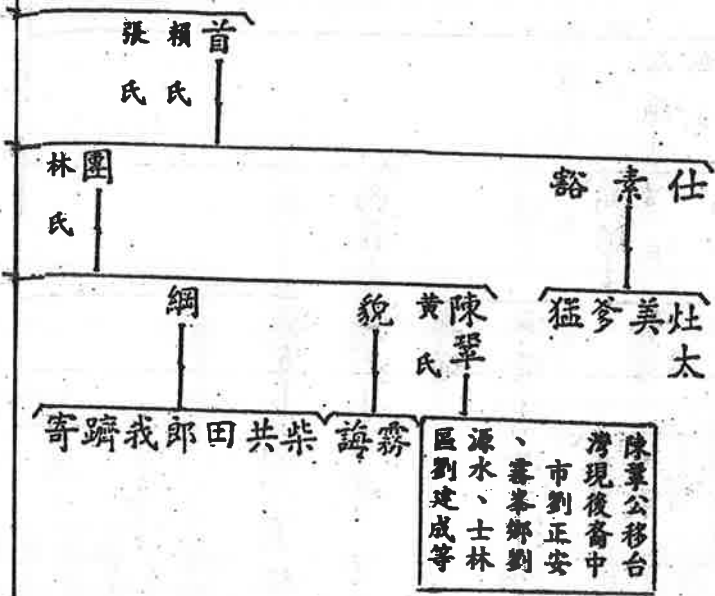 首
賴氏
張氏
仕
素
豁
團
林氏
灶太
美
爹
猛
陳翠
黃氏
貌
綱
陳翠公移台
灣現後裔中
市劉正安
、霧峯鄉劉
源水、士林
區劉建成等
霧
誨
柴
共
田
郎
我
躋
寄